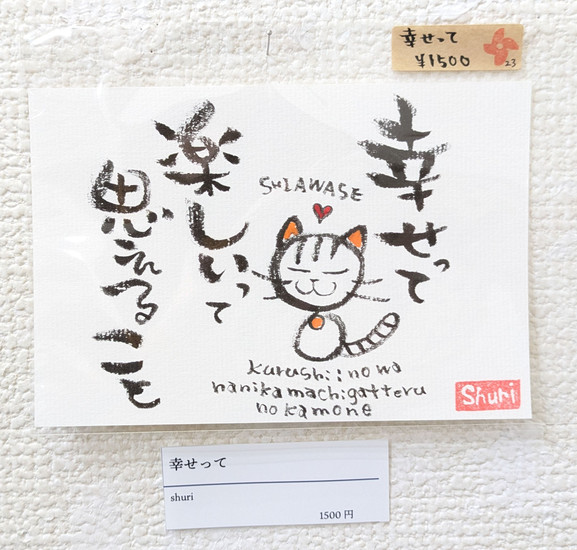 幸せって
¥1500
23
幸せって
楽しいって
思えること
SHIAWASE
kurushiinowa
nanikamachigatteru
nokamone
Shuri
幸せって
shuri
1500円